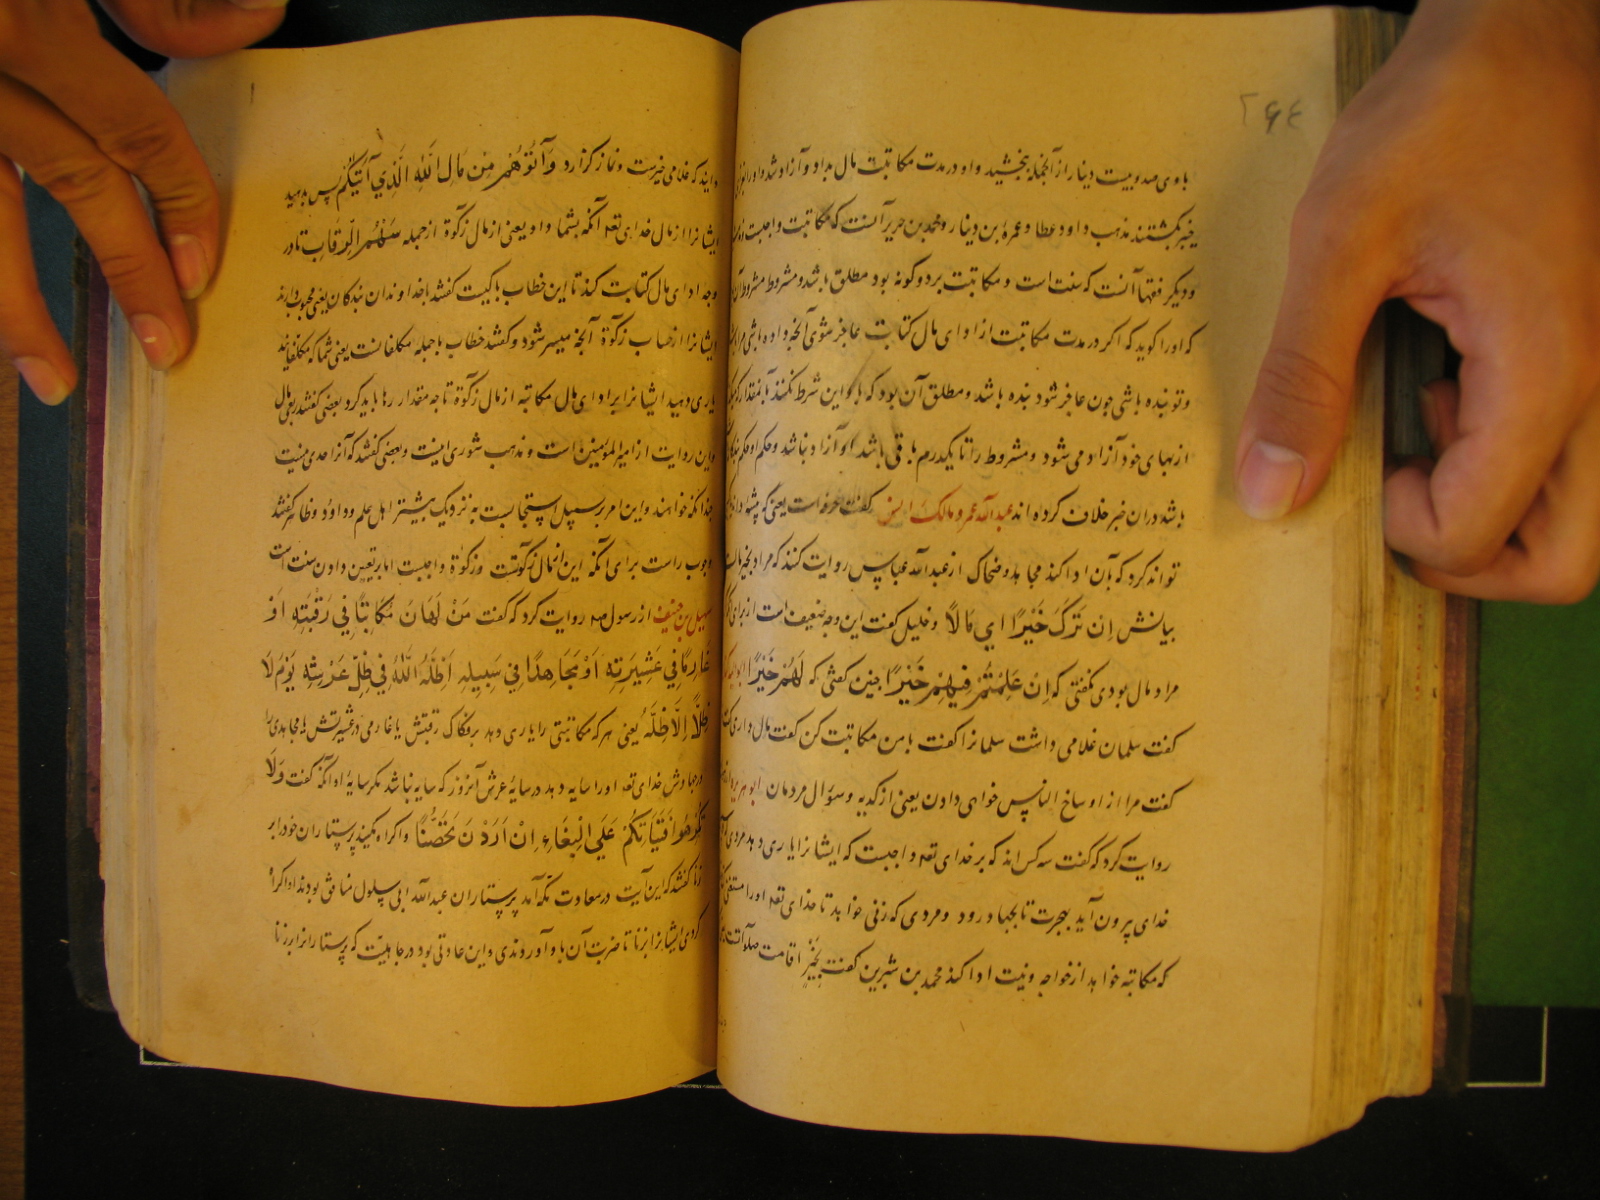 ۲۶۴
باوی صد و بیست دینار از آنجمله ببخشید و او در مدت مکاتبت مال بداد و آزاد شد و او را
خیبر بکشتند مذهب داود و عطا و عمرو بن دینار و محمد بن جریر آنست که مکاتبت واجبست
و دیگر فقها آنست که سنت است و مکاتبت بر دو گونه بود مطلق باشد و مشروط مشروط آن
که او را کوید که اکر در مدت مکاتبت از ادای مال کتابت عاجز شوی آنچه داده باشی مرا
و تو بنده باشی چون عاجز شود بنده باشد و مطلق آن بود که با او این شرط نکنند
از بهای خود آزاد می شود و مشروط را تا یکدرم باقی باشد او آزاد نباشد و حکم او حکم
باشد در ان خبر خلاف کرده اند عبد الله عمر و مالک انس کفت حرفه است یعنی
تواند کرد که بآن ادا کند مجاهد و ضحاک از عبد الله عباس روایت کنند که مراد بخیر مالست
بیانش اِن تَرَكَ خَيْرًا اي مَالًا و خلیل کفت این وجه ضعیف است از برای
مراد مال بودی کفتی که اِنْ عَلِمْتُمْ فِيهِمْ خَيْرًا چنین کفتی که لَهُمْ خَيْرًا
کفت سلمان غلامی داشت سلمانرا کفت با من مکاتبت کن کفت مال داری
کفت مرا از اوساخ الناس خواهی دادن یعنی از کدیه و سؤال مردمان ابو هریره
روایت کرد که کفت سه کس اند که بر خدای تعه واجبست که ایشانرا یاری دهد مردی
خدای بیرون آید بهجرت تا بجهاد رود و مردی که زنی خواهد تا خدای تعه او را
که مکاتبه خواهد از خواجه و نیت ادا کند محمد بن شیرین کفت بِخَيْرٍ اقامت صلوة است
دانید که غلامی خیرست و نماز کزارد وَآتُوهُمْ مِنْ مَالِ اللّٰهِ الَّذِي آتَيكُمْ پس بدهید
ایشانرا از مال خدای تعه آنکه بشما داد یعنی از مال زکوة از جمله سَهْمُ الرِّقَابِ تا در
وجه ادای مال کتابت کند تا این خطاب با کیست کفتند با خداوندان بندکان یعنی
ایشانرا از حساب زکوة آنچه میسر شود و کفتند خطاب با جمله مکلفانست یعنی شما که مکلفانید
یاری دهید ایشانرا بر ادای مال مکاتبه از مال زکوة تا چه مقدار رها باید کرد بعضی کفتند ربع مال
و این روایت از امیر المؤمنین است و مذهب ثوری اینست و بعضی کفتند که آنرا حدی نیست
چندانکه خواهند و این امر بر سبیل استحبابست به نزدیک بیشتر اهل علم و داود و ظاهر کفتند
وجوب راست برای آنکه این از مال زکوتست و زکوة واجبست اما بر تعیین دادن سنت است
سهیل بن حنیف از رسول صه روایت کرد که کفت مَنْ اَعَانَ مُكَاتَبًا فِي رَقْبَتِهِ اَوْ
غَارِمًا فِي عَشِيرَتِهِ اَوْ مُجَاهِدًا فِي سَبِيلِهِ اَظَلَّهُ اللّٰهُ فِي ظِلِّ عَرْشِهِ يَوْمَ لَا
ظِلَّ اِلَّا ظِلُّهُ یعنی هر که مکاتبی را یاری دهد بر فکاک رقبتش یا غارمی در عشیرتش یا مجاهدی را
در جهادش خدای تعه او را سایه دهد در سایهٔ عرش آنروز که سایه نباشد مکر سایهٔ او آنکه کفت وَلَا
تُكْرِهُوا فَتَيَاتِكُمْ عَلَي الْبِغَاءِ اِنْ اَرَدْنَ تَحَصُّنًا و اکراه مکنید پرستاران خود را بر
زنا کفتند که این آیت در معادت مکه آمد پرستاران عبد الله ابی سلول منافق بودند او اکراه
کردی ایشانرا بر زنا تا ضریبت آن باو آوردندی و این عادتی بود در جاهلیت که پرستارانرا بر زنا